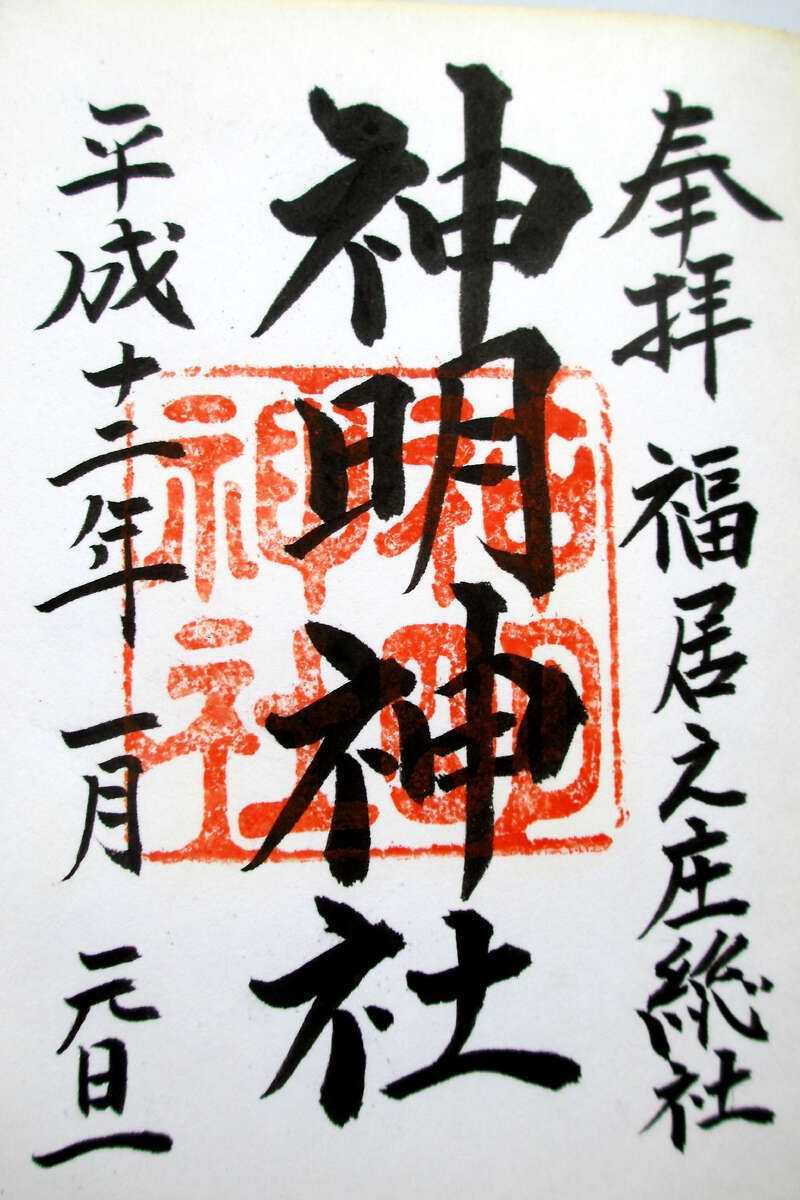 奉拝 福居之庄総社
神明神社
神明
神社
平成十二年 一月 元旦